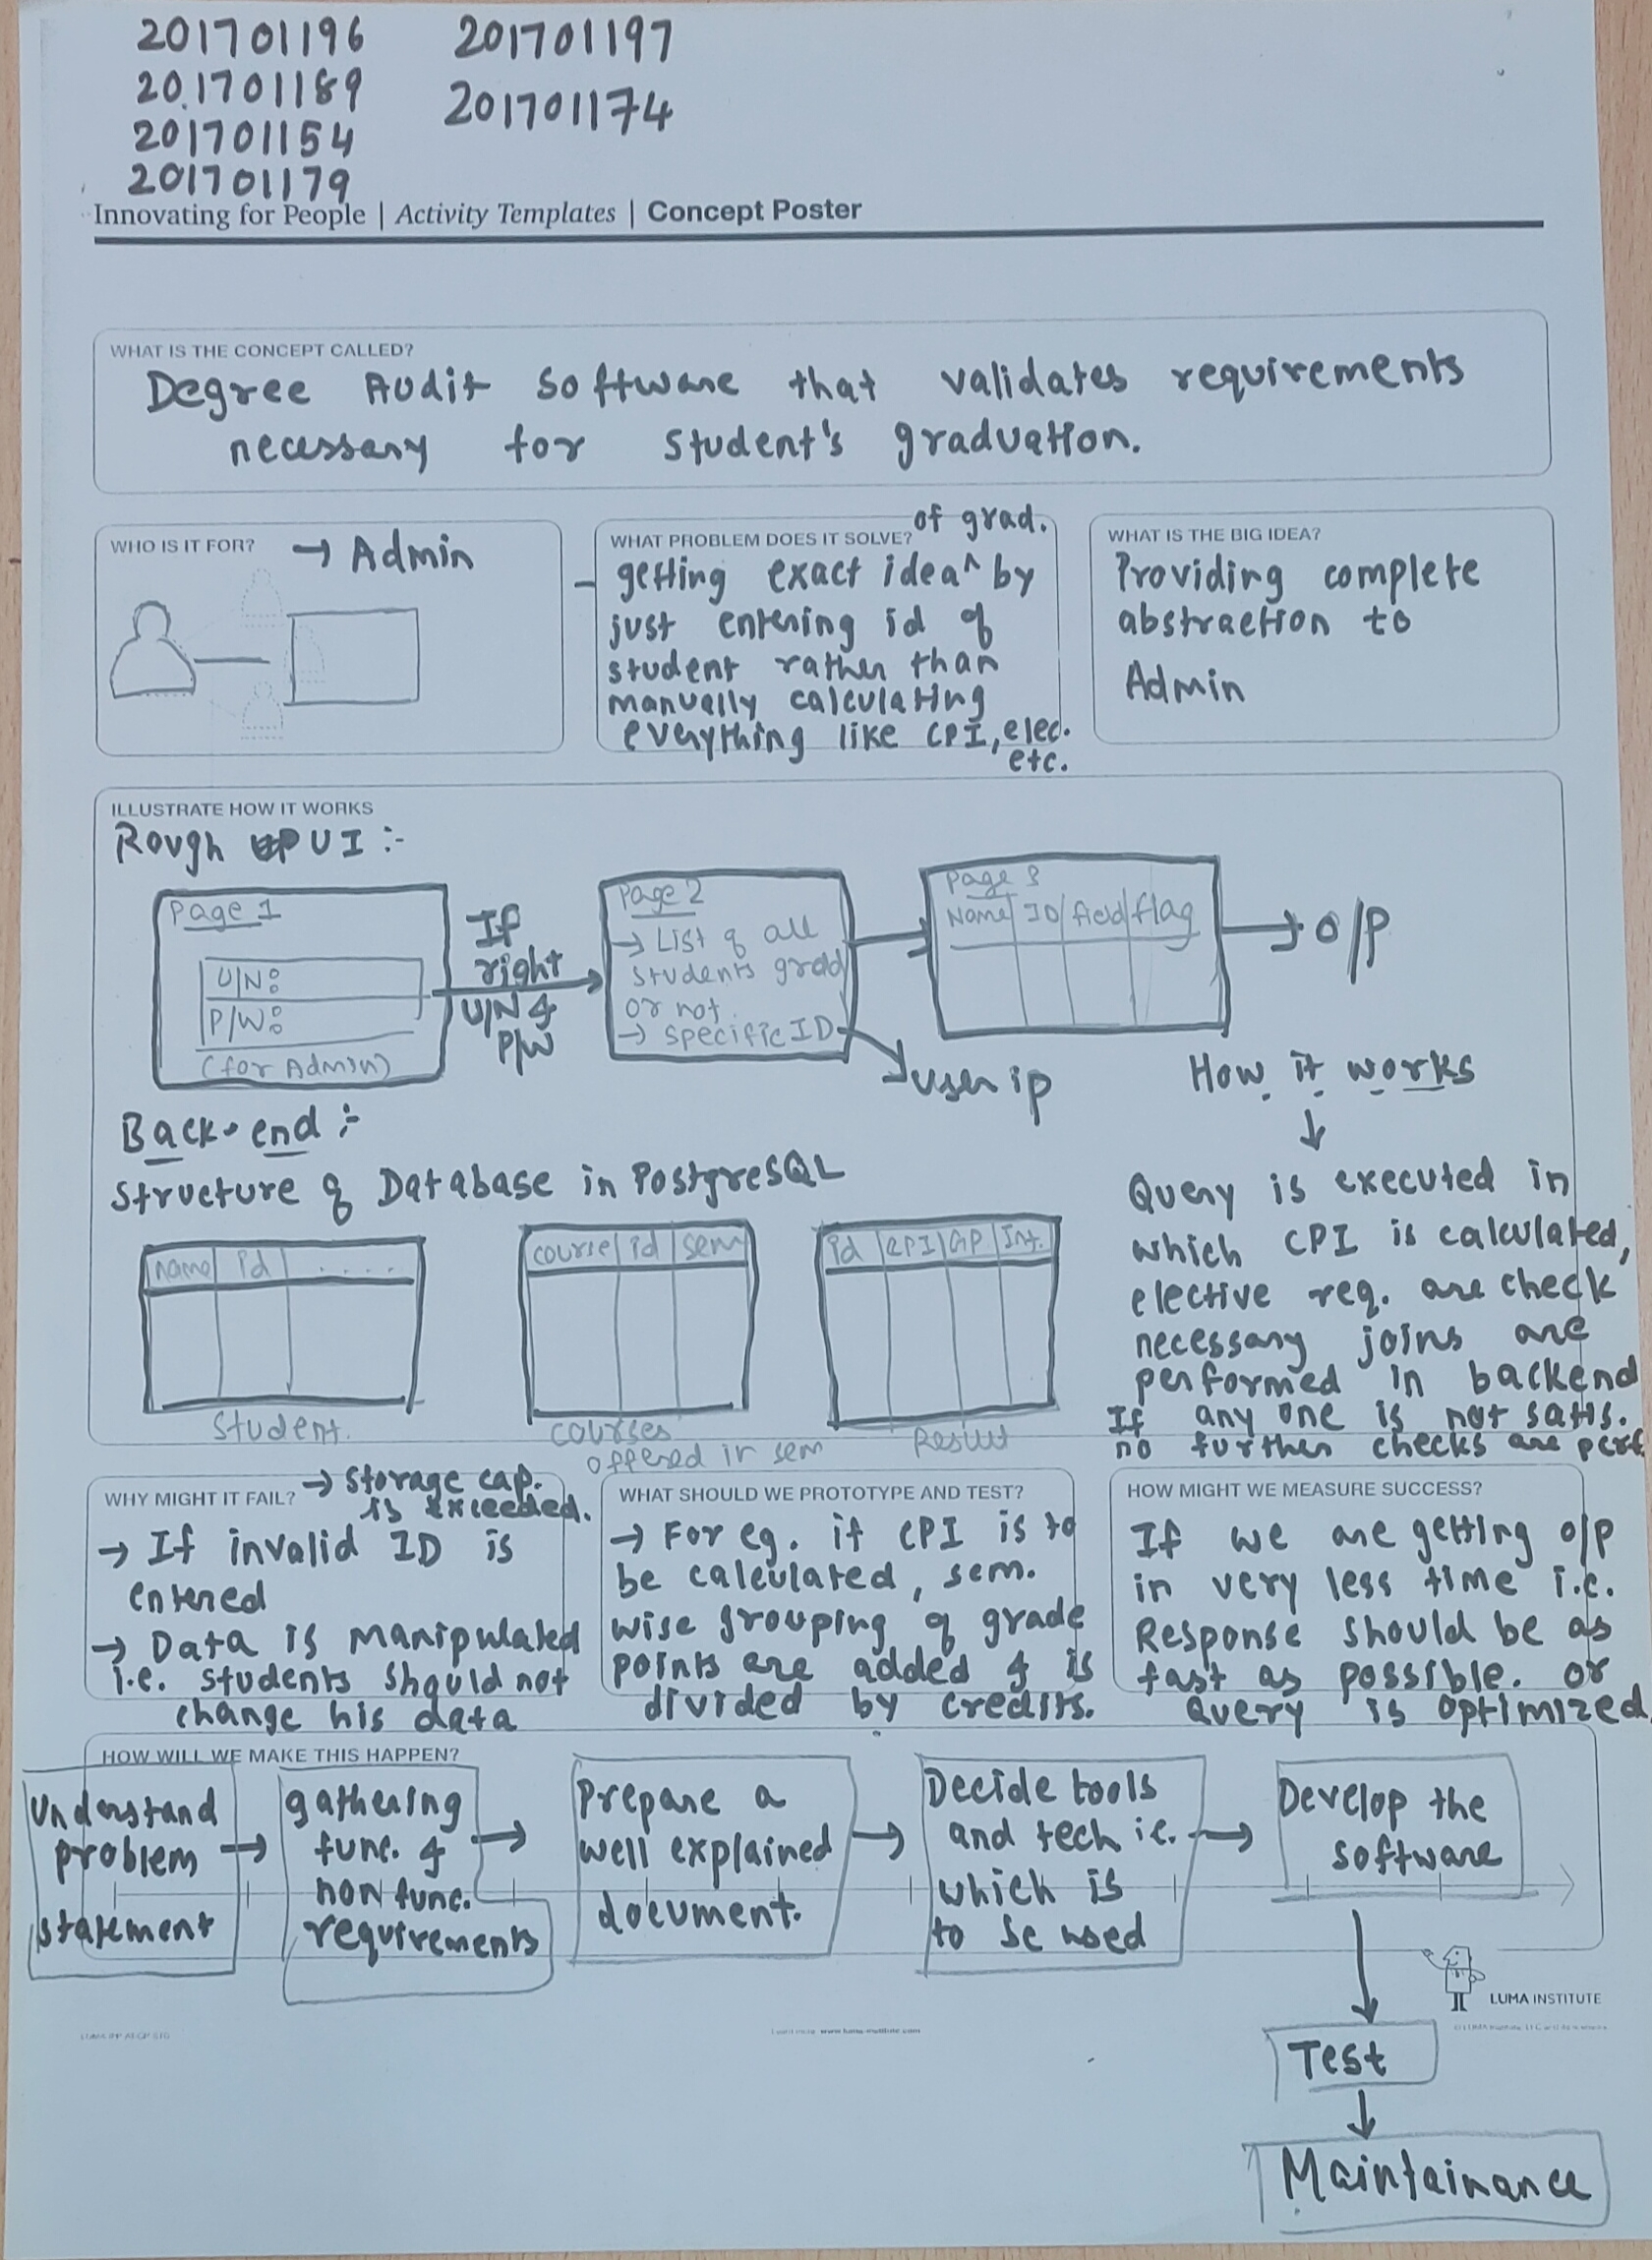 201701196 201701197
201701189 201701174
201701154
201701179
Innovating for People | Activity Templates | Concept Poster
WHAT IS THE CONCEPT CALLED?
Degree Audit software that validates requirements
necessary for student's graduation.
WHO IS IT FOR? → Admin
WHAT PROBLEM DOES IT SOLVE?
of grad.
- getting exact idea^ by
just entering id of
student rather than
manually calculating
everything like CPI, elec.
etc.
WHAT IS THE BIG IDEA?
Providing complete
abstraction to
Admin
ILLUSTRATE HOW IT WORKS
Rough UI :-
Page 1
U/N:
P/W:
(for Admin)
If
right
U/N &
P/W
Page 2
→ List of all
students grad
or not.
→ specific ID
user ip
Page 3
Name ID field flag
O/P
Back-end :-
Structure of Database in PostgreSQL
name id ....
Student.
course id sem
courses
offered in sem
id CPI GP Int.
Result
How it works
↓
Query is executed in
which CPI is calculated,
elective req. are check
necessary joins are
performed in backend
If any one is not satis.
no further checks are perf.
WHY MIGHT IT FAIL? → storage cap.
is exceeded.
→ If invalid ID is
entered
→ Data is manipulated
i.e. students should not
change his data
WHAT SHOULD WE PROTOTYPE AND TEST?
→ For eg. if CPI is to
be calculated, sem.
wise grouping of grade
points are added & is
divided by credits.
HOW MIGHT WE MEASURE SUCCESS?
If we are getting o/p
in very less time i.e.
Response should be as
fast as possible. or
Query is optimized
HOW WILL WE MAKE THIS HAPPEN?
Understand
problem
statement
gathering
func. &
non func.
requirements
Prepare a
well explained
document.
Decide tools
and tech i.e.
which is
to be used
Develop the
software
LUMA INSTITUTE
Test
Maintainance